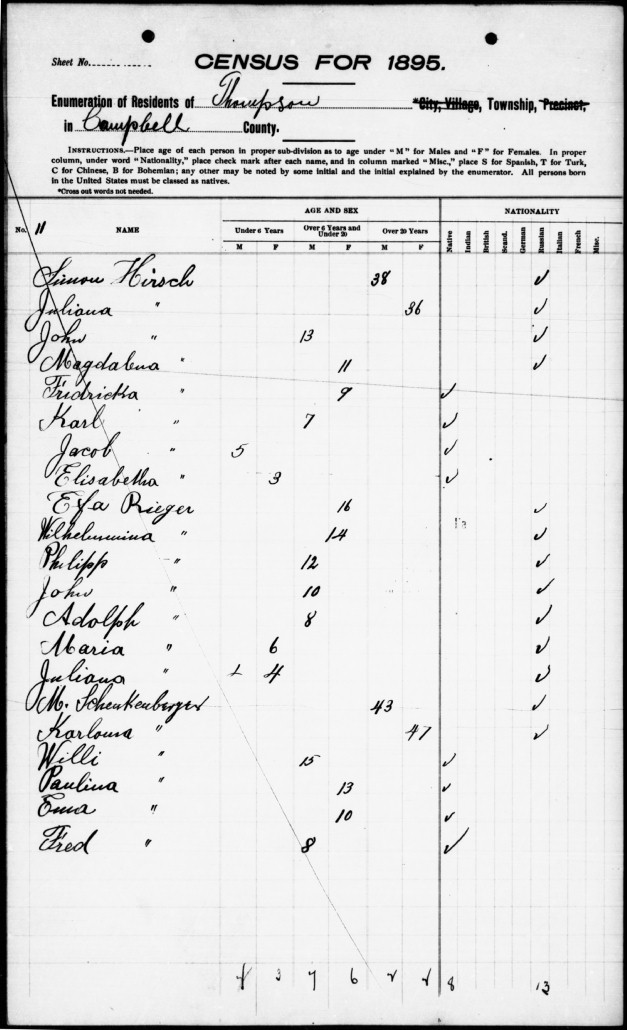 Sheet No.
CENSUS FOR 1895.
Enumeration of Residents of Thompson *City, Village, Township, Precinct,
in Campbell County.
INSTRUCTIONS.—Place age of each person in proper sub-division as to age under "M" for Males and "F" for Females. In proper
column, under word "Nationality," place check mark after each name, and in column marked "Misc.," place S for Spanish, T for Turk,
C for Chinese, B for Bohemian; any other may be noted by some initial and the initial explained by the enumerator. All persons born
in the United States must be classed as natives.
*Cross out words not needed.
AGE AND SEX NATIONALITY
No. 11 NAME Under 6 Years Over 6 Years and Under 20 Over 20 Years
M F M F M F Native Indian British Scand. German Russian Italian French Misc.
Simon Hirsch 38 ✓
Juliana " 36 ✓
John " 13 ✓
Magdalena " 11 ✓
Fridricka " 9 ✓
Karl " 7 ✓
Jacob " 5 ✓
Elisabetha " 3 ✓
Efa Rieger 16 ✓
Wilhelmmina " 14 ✓
Philipp " 12 ✓
John " 10 ✓
Adolph " 8 ✓
Maria " 6 ✓
Juliana " 4 ✓
M. Schenkenberger 43 ✓
Karlouna " 47 ✓
Willi " 15 ✓
Paulina " 13 ✓
Ema " 10 ✓
Fred " 8 ✓
3 7 6 2 8 13